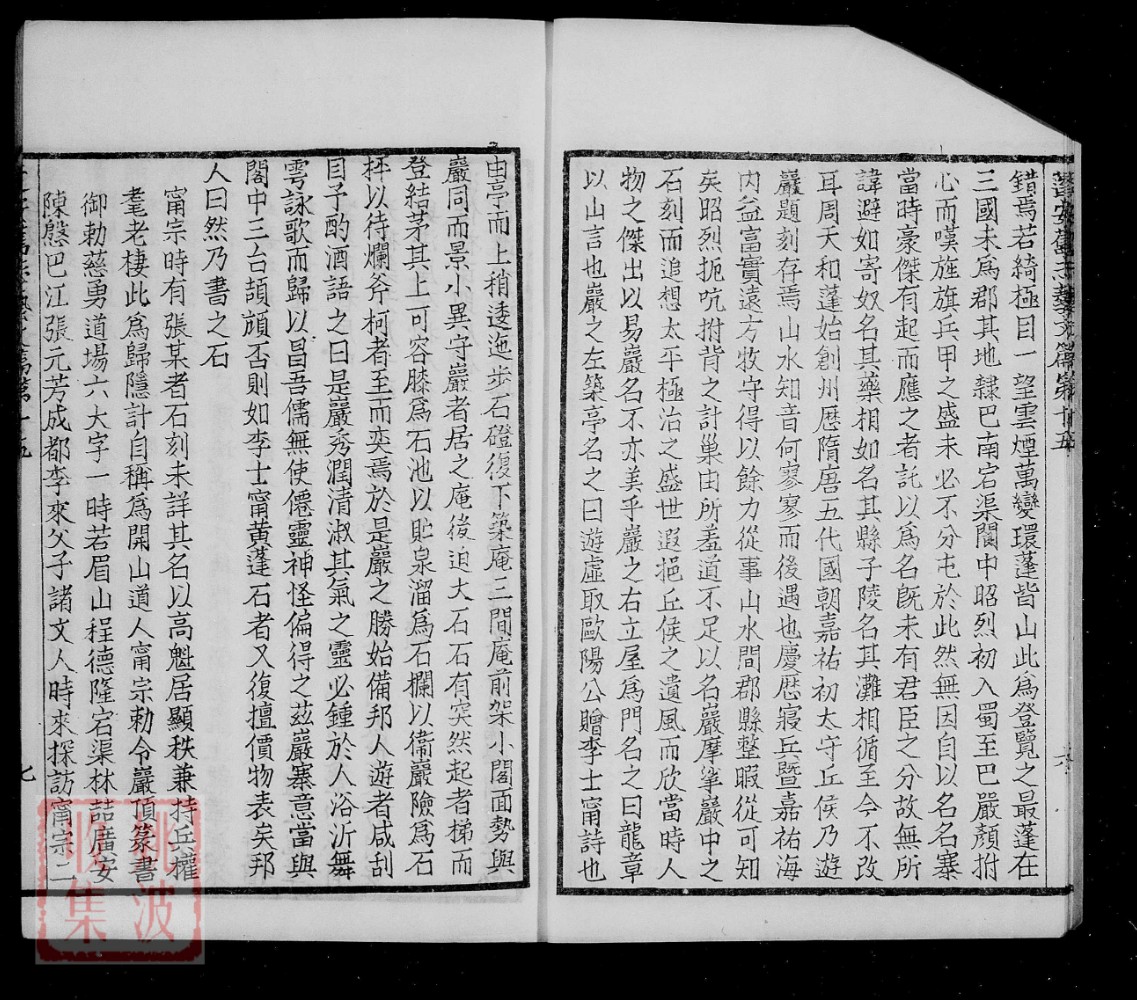 錯焉若綺極目一望雲煙萬變環蓬皆山此爲登覽之最蓬在
三國未爲郡其地隸巴南宕渠閬中昭烈初入蜀至巴嚴顏拊
心而嘆旌旗兵甲之盛未必不分屯於此然無因自以名名寨
當時豪傑有起而應之者託以爲名旣未有君臣之分故無所
諱避如寄奴名其藥相如名其縣子陵名其灘相循至今不改
耳周天和蓬始創州歷隋唐五代國朝嘉祐初太守丘侯乃遊
巖題刻存焉山水知音何寥寥而後遇也慶歷寢兵暨嘉祐海
内益富實遠方牧守得以餘力從事山水間郡縣整暇從可知
矣昭烈扼吭拊背之計巢由所羞道不足以名巖摩挲巖中之
石刻而追想太平極治之盛世遐挹丘侯之遺風而欣當時人
物之傑出以易巖名不亦美乎巖之右立屋爲門名之曰龍章
以山言也巖之左築亭名之曰遊虛取歐陽公贈李士甯詩也
由亭而上稍逶迤步石磴復下築庵三間庵前架小閣面勢與
巖同而景小異守巖者居之庵後迫大石石有突然起者梯而
登結茅其上可容膝爲石池以貯泉溜爲石欄以衞巖險爲石
枰以待爛斧柯者至而奕焉於是巖之勝始備邦人遊者咸刮
目予酌酒語之曰是巖秀潤清淑其氣之靈必鍾於人浴沂舞
雩詠歌而歸以昌吾儒無使僊靈神怪偏得之茲巖寨意當與
閣中三台頡頏否則如李士甯黄蓬石者又復擅價物表矣邦
人曰然乃書之石
甯宗時有張某者石刻未詳其名以高魁居顯秩兼持兵權
耄老棲此爲歸隱計自稱爲開山道人甯宗勅令巖頂篆書
御勅慈勇道場六大字一時若眉山程德隆宕渠林喆廣安
陳槃巴江張元芳成都李來父子諸文人時來探訪甯宗二
七